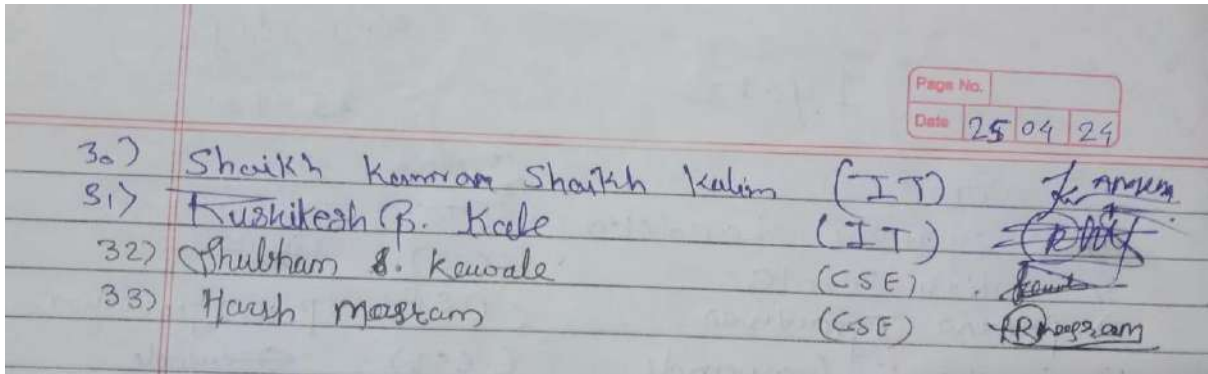 Page No.
Date 25 04 24
30) Shaikh Kamran Shaikh Kalim (IT)
31) Rushikesh B. Kale (IT)
32) Shubham S. Kawale (CSE)
33) Harsh Mastam (CSE)